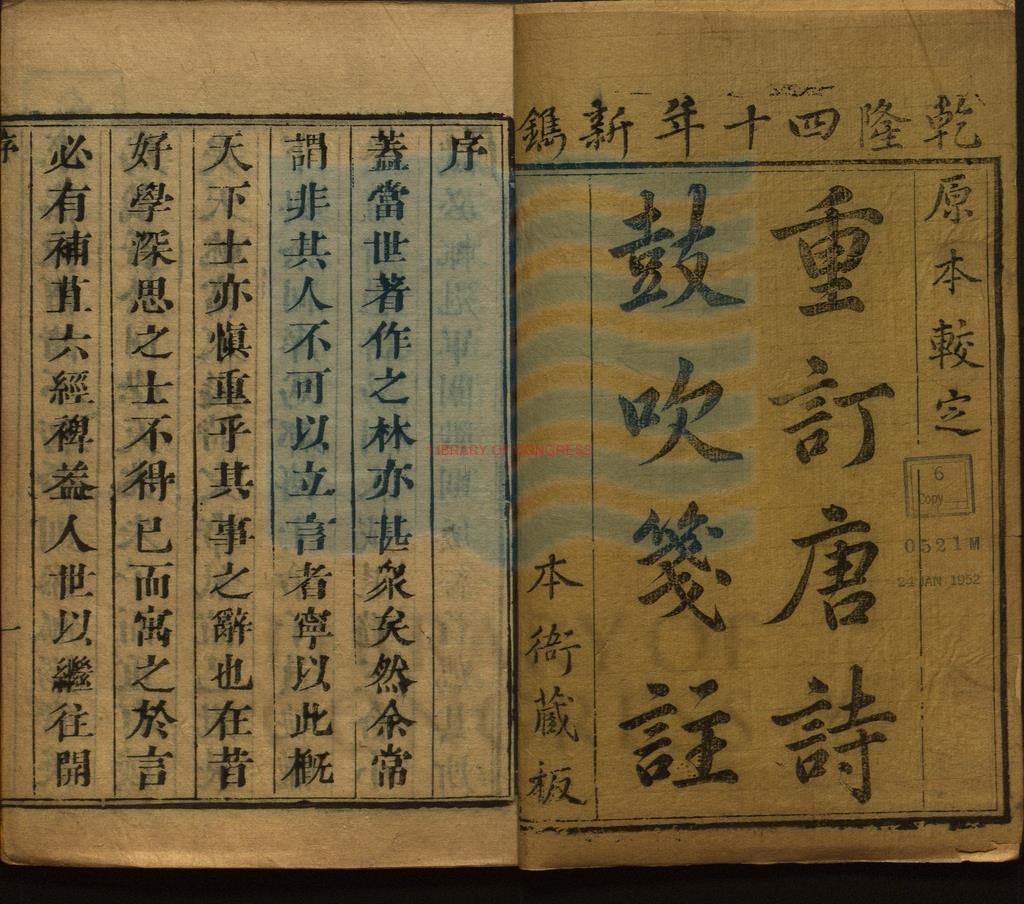 乾隆四十年新鐫
原本較定
重訂唐詩
鼓吹箋註
本衙藏板
6
Copy
0521M
24 JAN 1952
LIBRARY OF CONGRESS
序
蓋當世著作之林亦甚衆矣然余常
謂非其人不可以立言者寧以此概
天下士亦愼重乎其事之辭也在昔
好學深思之士不得已而寓之於言
必有補苴六經裨益人世以繼往開
序
一